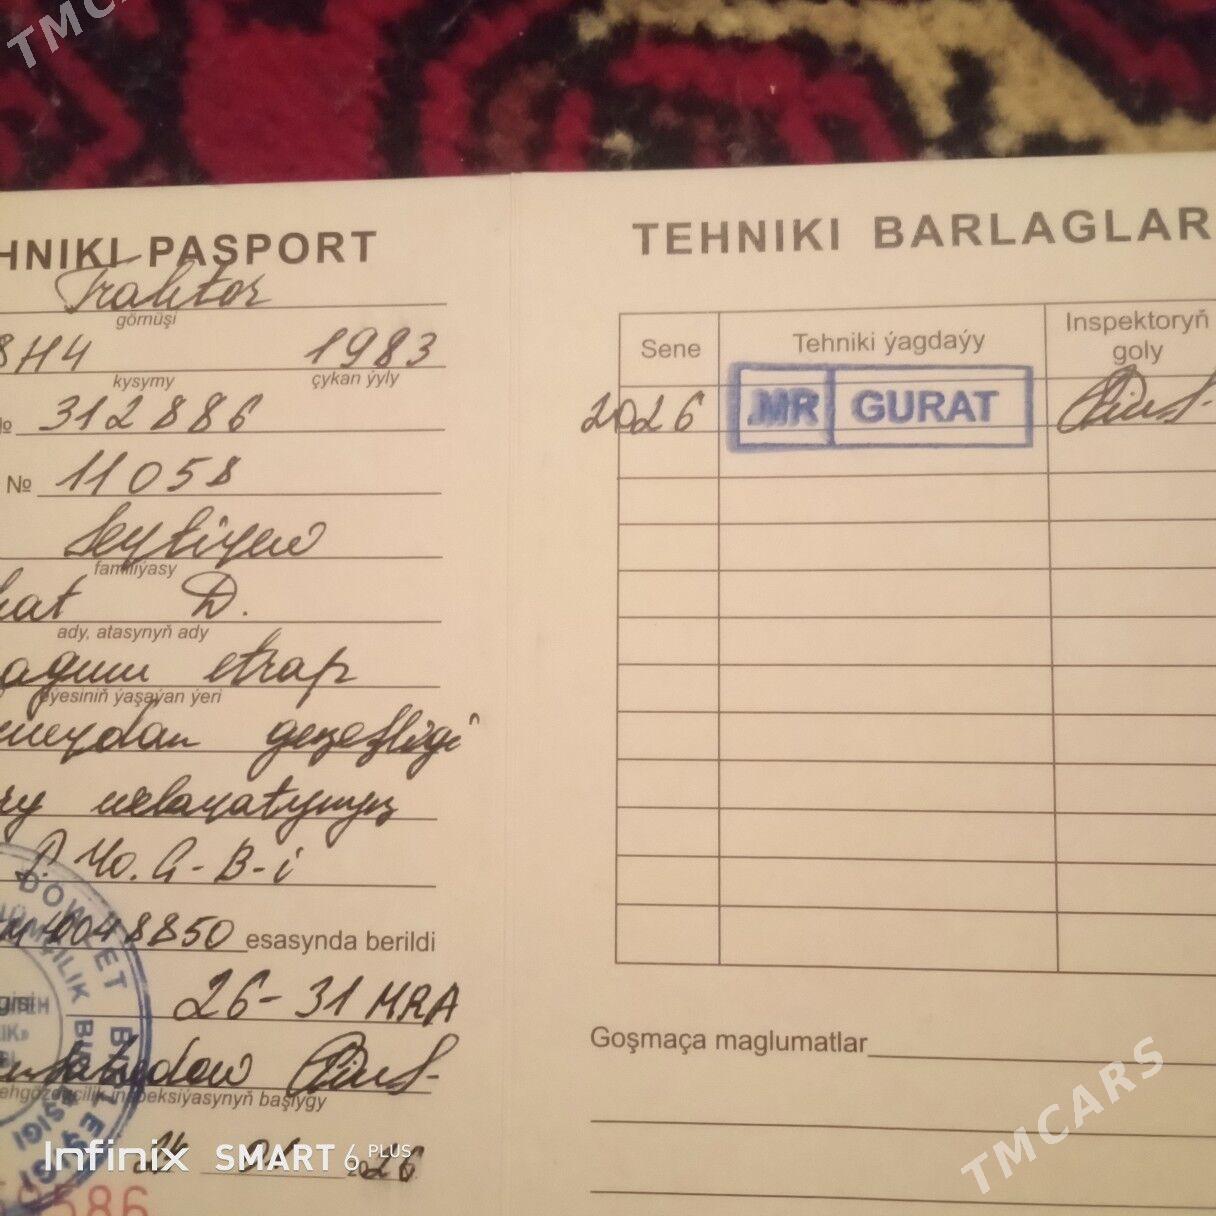 TMCARS
HNIKI PASPORT
Traktor
görnüşi
8H4 1983
kysymy çykan ýyly
№ 312886
№ 11058
Seytiyew
familiýasy
hat D.
ady, atasynyň ady
agum etrap
eýesiniň ýaşaýan ýeri
meydan geňeşligi
ry welayatynyň
0048850 esasynda berildi
26-31 MRA
ehgözegçilik inspeksiýasynyň başlygy
2026
9586
DÖWLET BIRLEŞIGI
Infinix SMART 6 PLUS
TEHNIKI BARLAGLAR
Sene Tehniki ýagdaýy Inspektoryň goly
2026 MR GURAT
Goşmaça maglumatlar
TMCARS